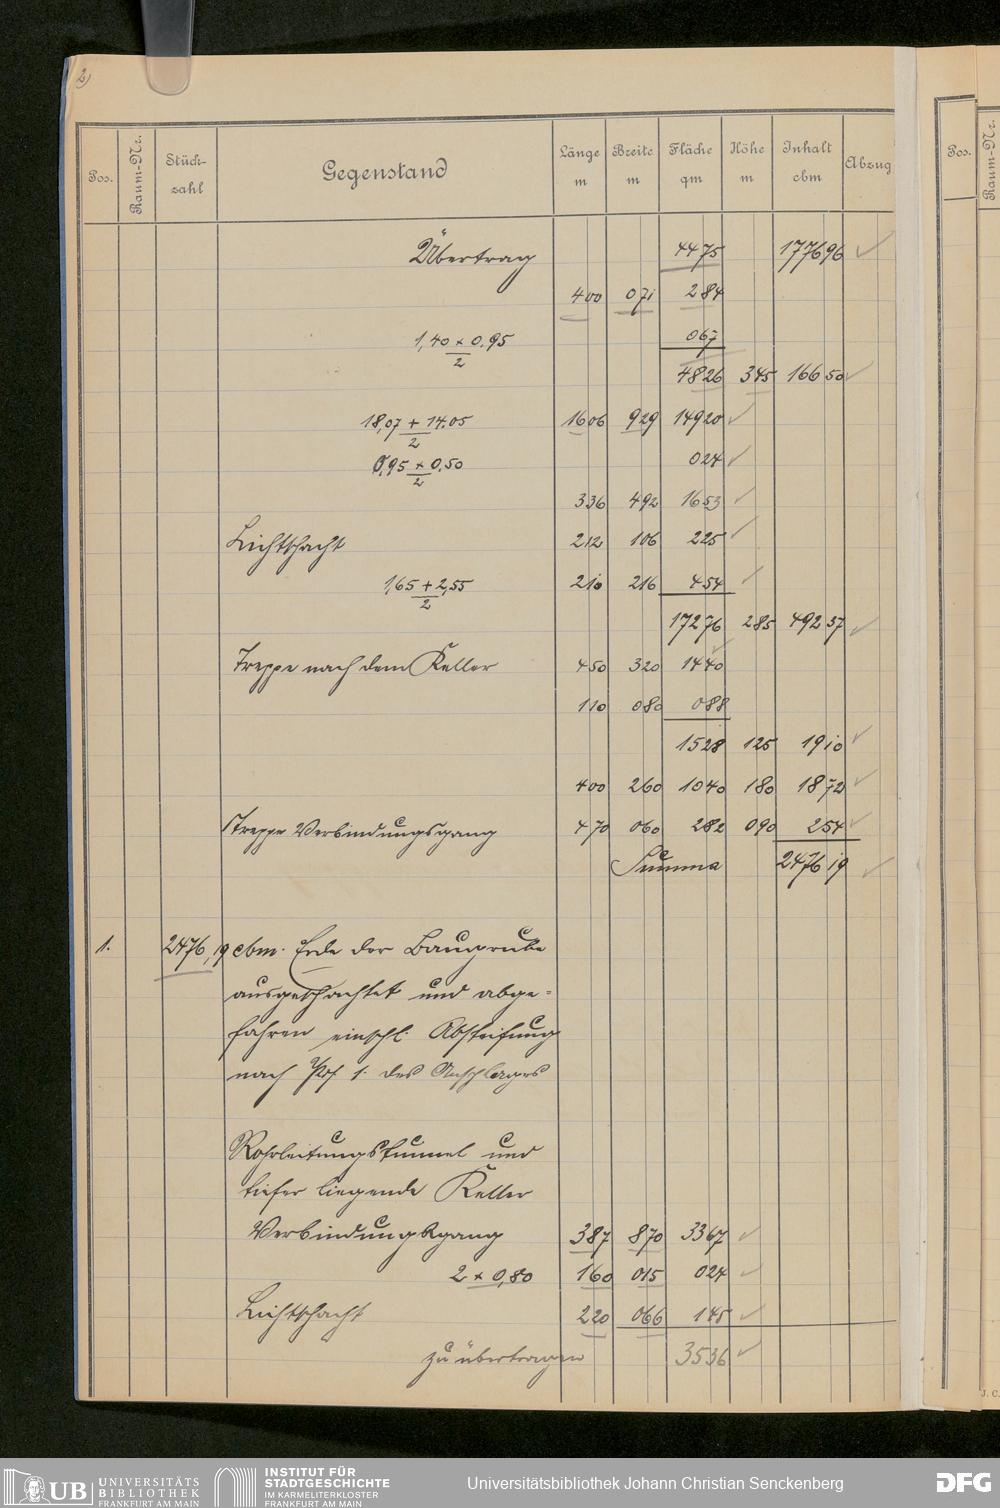 2)
Pos. Raum-Nr. Stückzahl Gegenstand Länge m Breite m Fläche qm Höhe m Inhalt cbm Abzug
Pos. Raum-Nr.
Übertrag 44 75 1776 96
4 00 0 71 2 84
1,40 × 0,95 / 2 0 67
48 26 3 45 166 50
18,07 + 14,05 / 2 16 06 9 29 149 20
0,95 × 0,50 / 2 0 24
3 36 4 92 16 53
Lichtschacht 2 12 1 06 2 25
1,65 + 2,55 / 2 2 10 2 16 4 54
172 76 2 85 492 37
Treppe nach dem Keller 4 50 3 20 14 40
1 10 0 80 0 88
15 28 1 25 19 10
4 00 2 60 10 40 1 80 18 72
Treppe Verbindungsgang 4 70 0 60 2 82 0 90 2 54
Summa 2476 19
1. 2476,19 cbm. Erde der Baugrube
ausgeschachtet und abge-
fahren einschl. Absteifung
nach Pos. 1. des Anschlages
Rohrleitungstunnel und
tiefer liegende Keller
Verbindungsgang 3 87 8 70 33 67
2 × 0,80 1 60 0 15 0 24
Lichtschacht 2 20 0 66 1 45
zu übertragen 35 36
J. C.
UB UNIVERSITÄTS
BIBLIOTHEK
FRANKFURT AM MAIN
INSTITUT FÜR
STADTGESCHICHTE
IM KARMELITERKLOSTER
FRANKFURT AM MAIN
Universitätsbibliothek Johann Christian Senckenberg
DFG